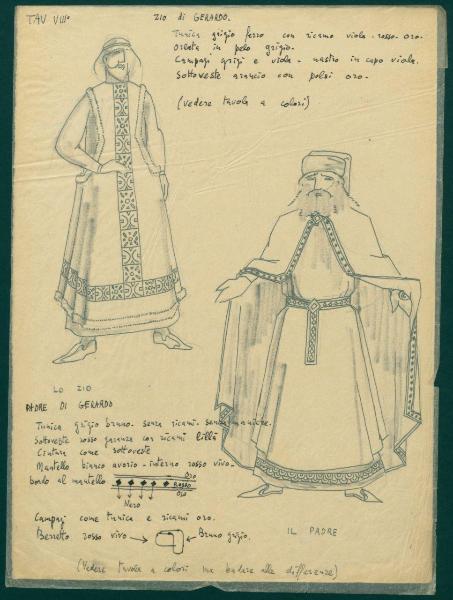 TAV VIIIª
ZIO di GERARDO.
Tunica grigio ferro con ricamo viola - rosso - oro.
Orlata in pelo grigio.
Campagi grigi e viola - nastro in capo viola.
Sottoveste arancio con polsi oro.
(vedere tavola a colori)
LO ZIO
PADRE DI GERARDO
Tunica grigio bruno - senza ricami - senza maniche.
Sottoveste rosso garanza con ricami lillà
Cintura come sottoveste
Mantello bianco avorio - interno rosso vivo -
bordo al mantello
oro
ROSSO
oro
Nero
Campagi come tunica e ricami oro.
Berretto rosso vivo
Bruno grigio.
IL PADRE
(Vedere tavola a colori ma badare alle differenze)